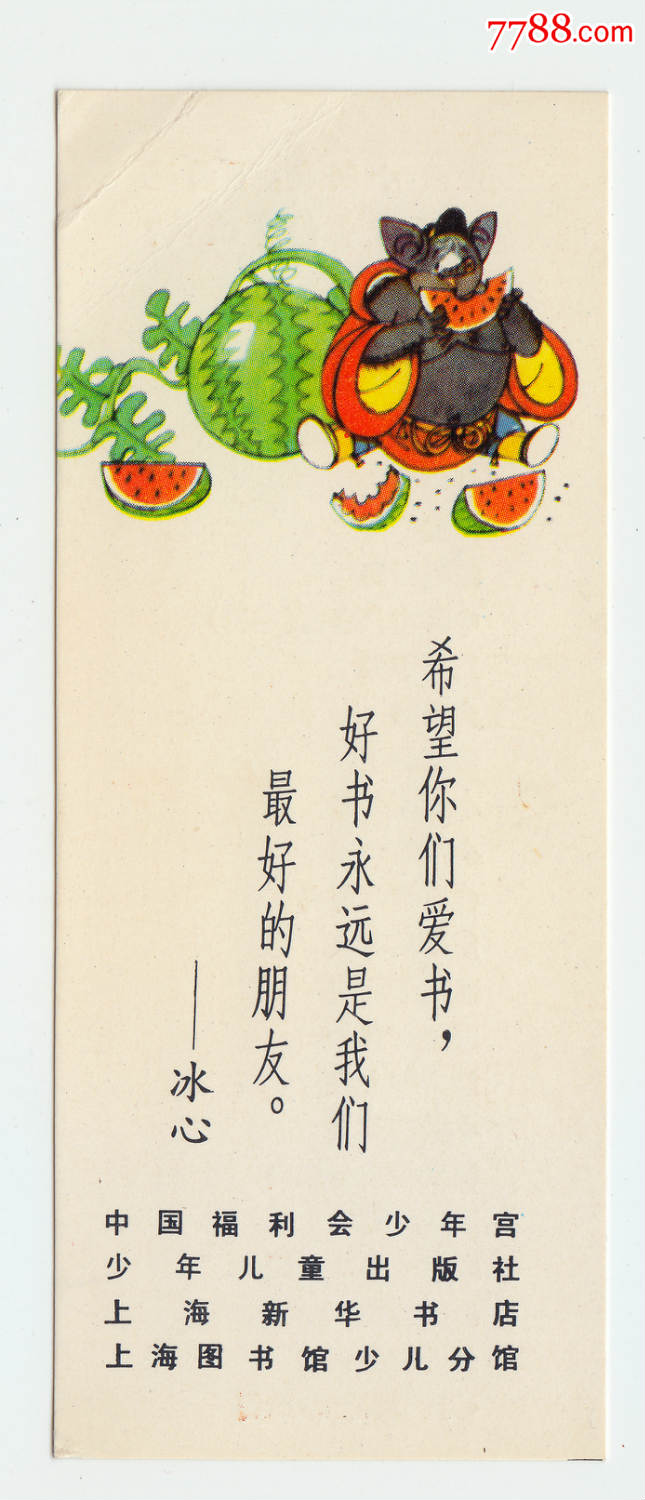 7788.com
希望你们爱书，
好书永远是我们
最好的朋友。
——冰心
中国福利会少年宫
少年儿童出版社
上海新华书店
上海图书馆少儿分馆